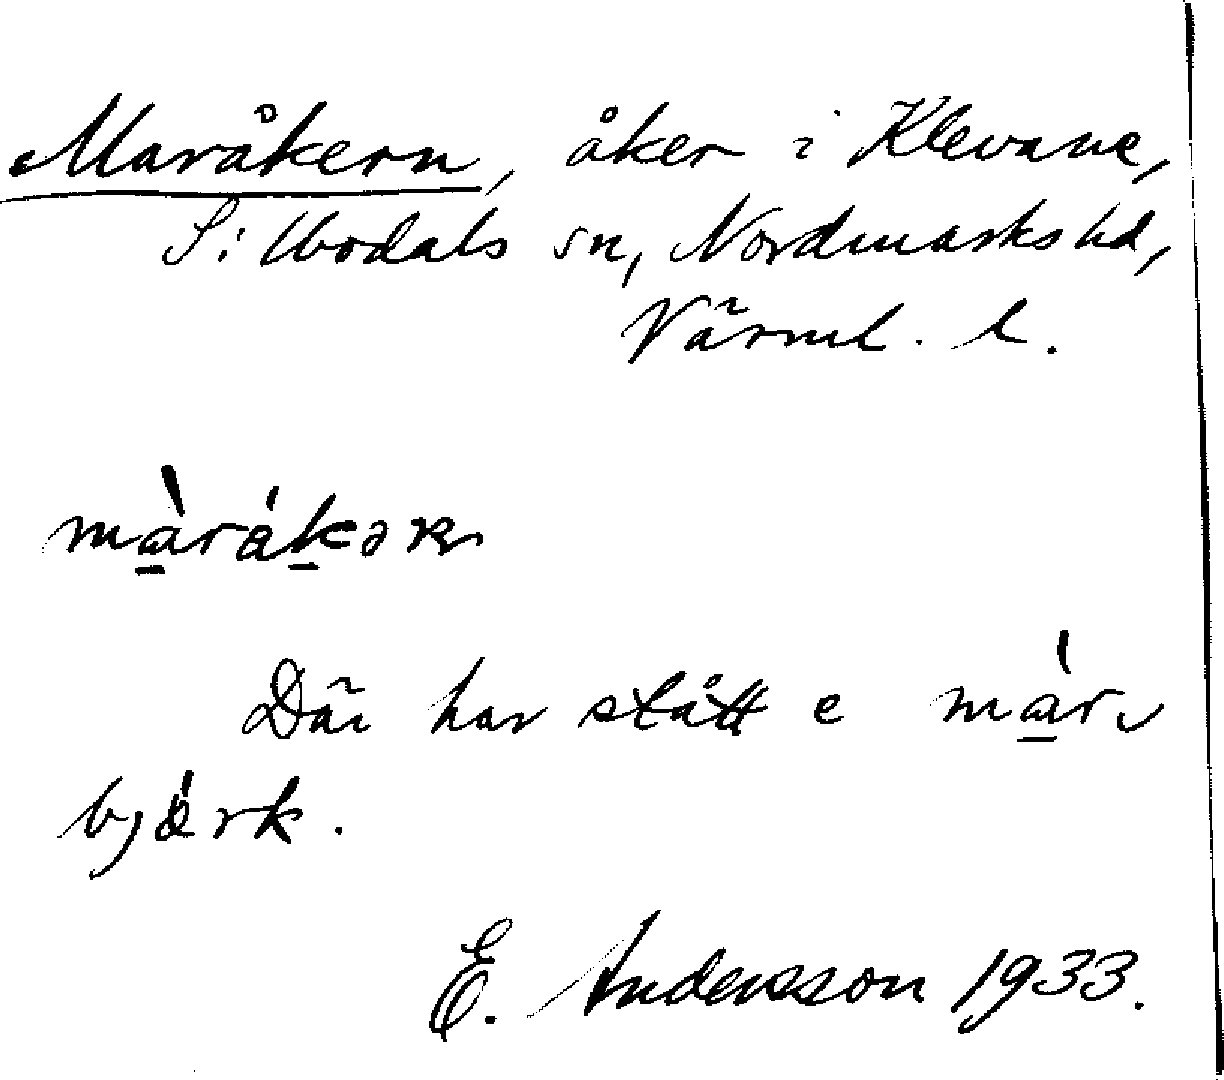 Maråkern, åker i Klevane,
S: Ibodals sn, Nordmarks hd,
Värml. l.
Där har stått e
björk.
E. Andersson 1933.